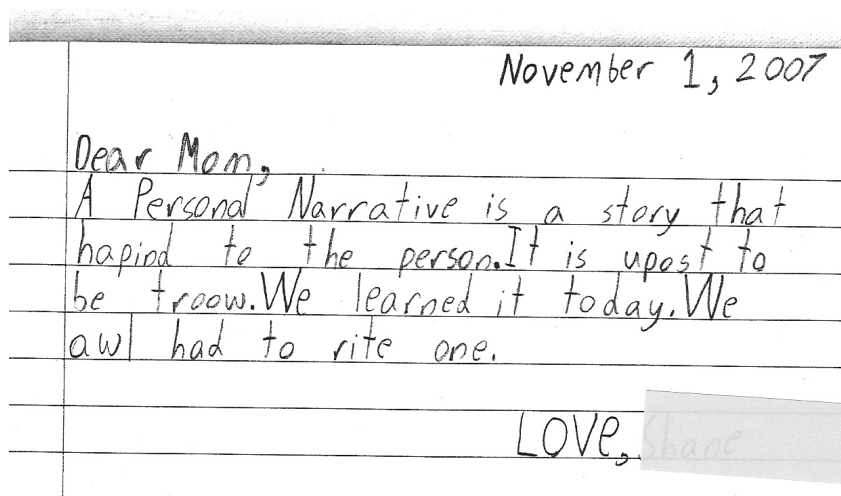 November 1, 2007
Dear Mom,
A Personal Narrative is a story that
hapind to the person. It is upost to
be troow. We learned it today. We
awl had to rite one.
Love, Shane